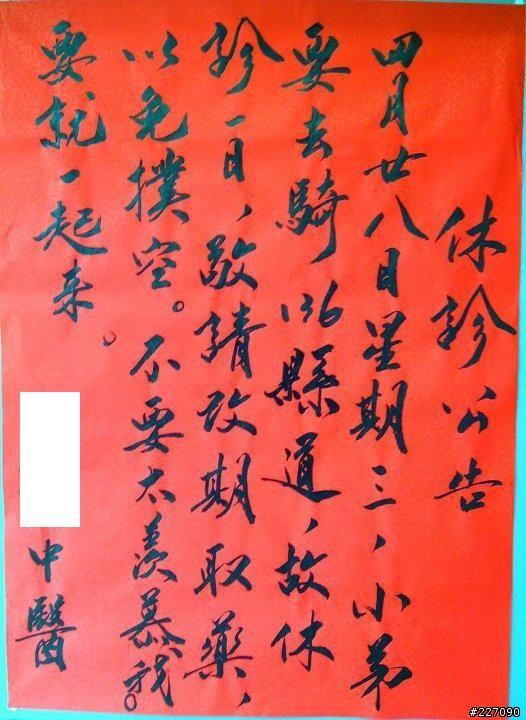 休診公告
四月廿八日星期三，小弟
要去騎136縣道，故休
診一日，敬請改期取藥，
以免撲空。不要太羨慕我。
要就一起來。
中醫
#227090